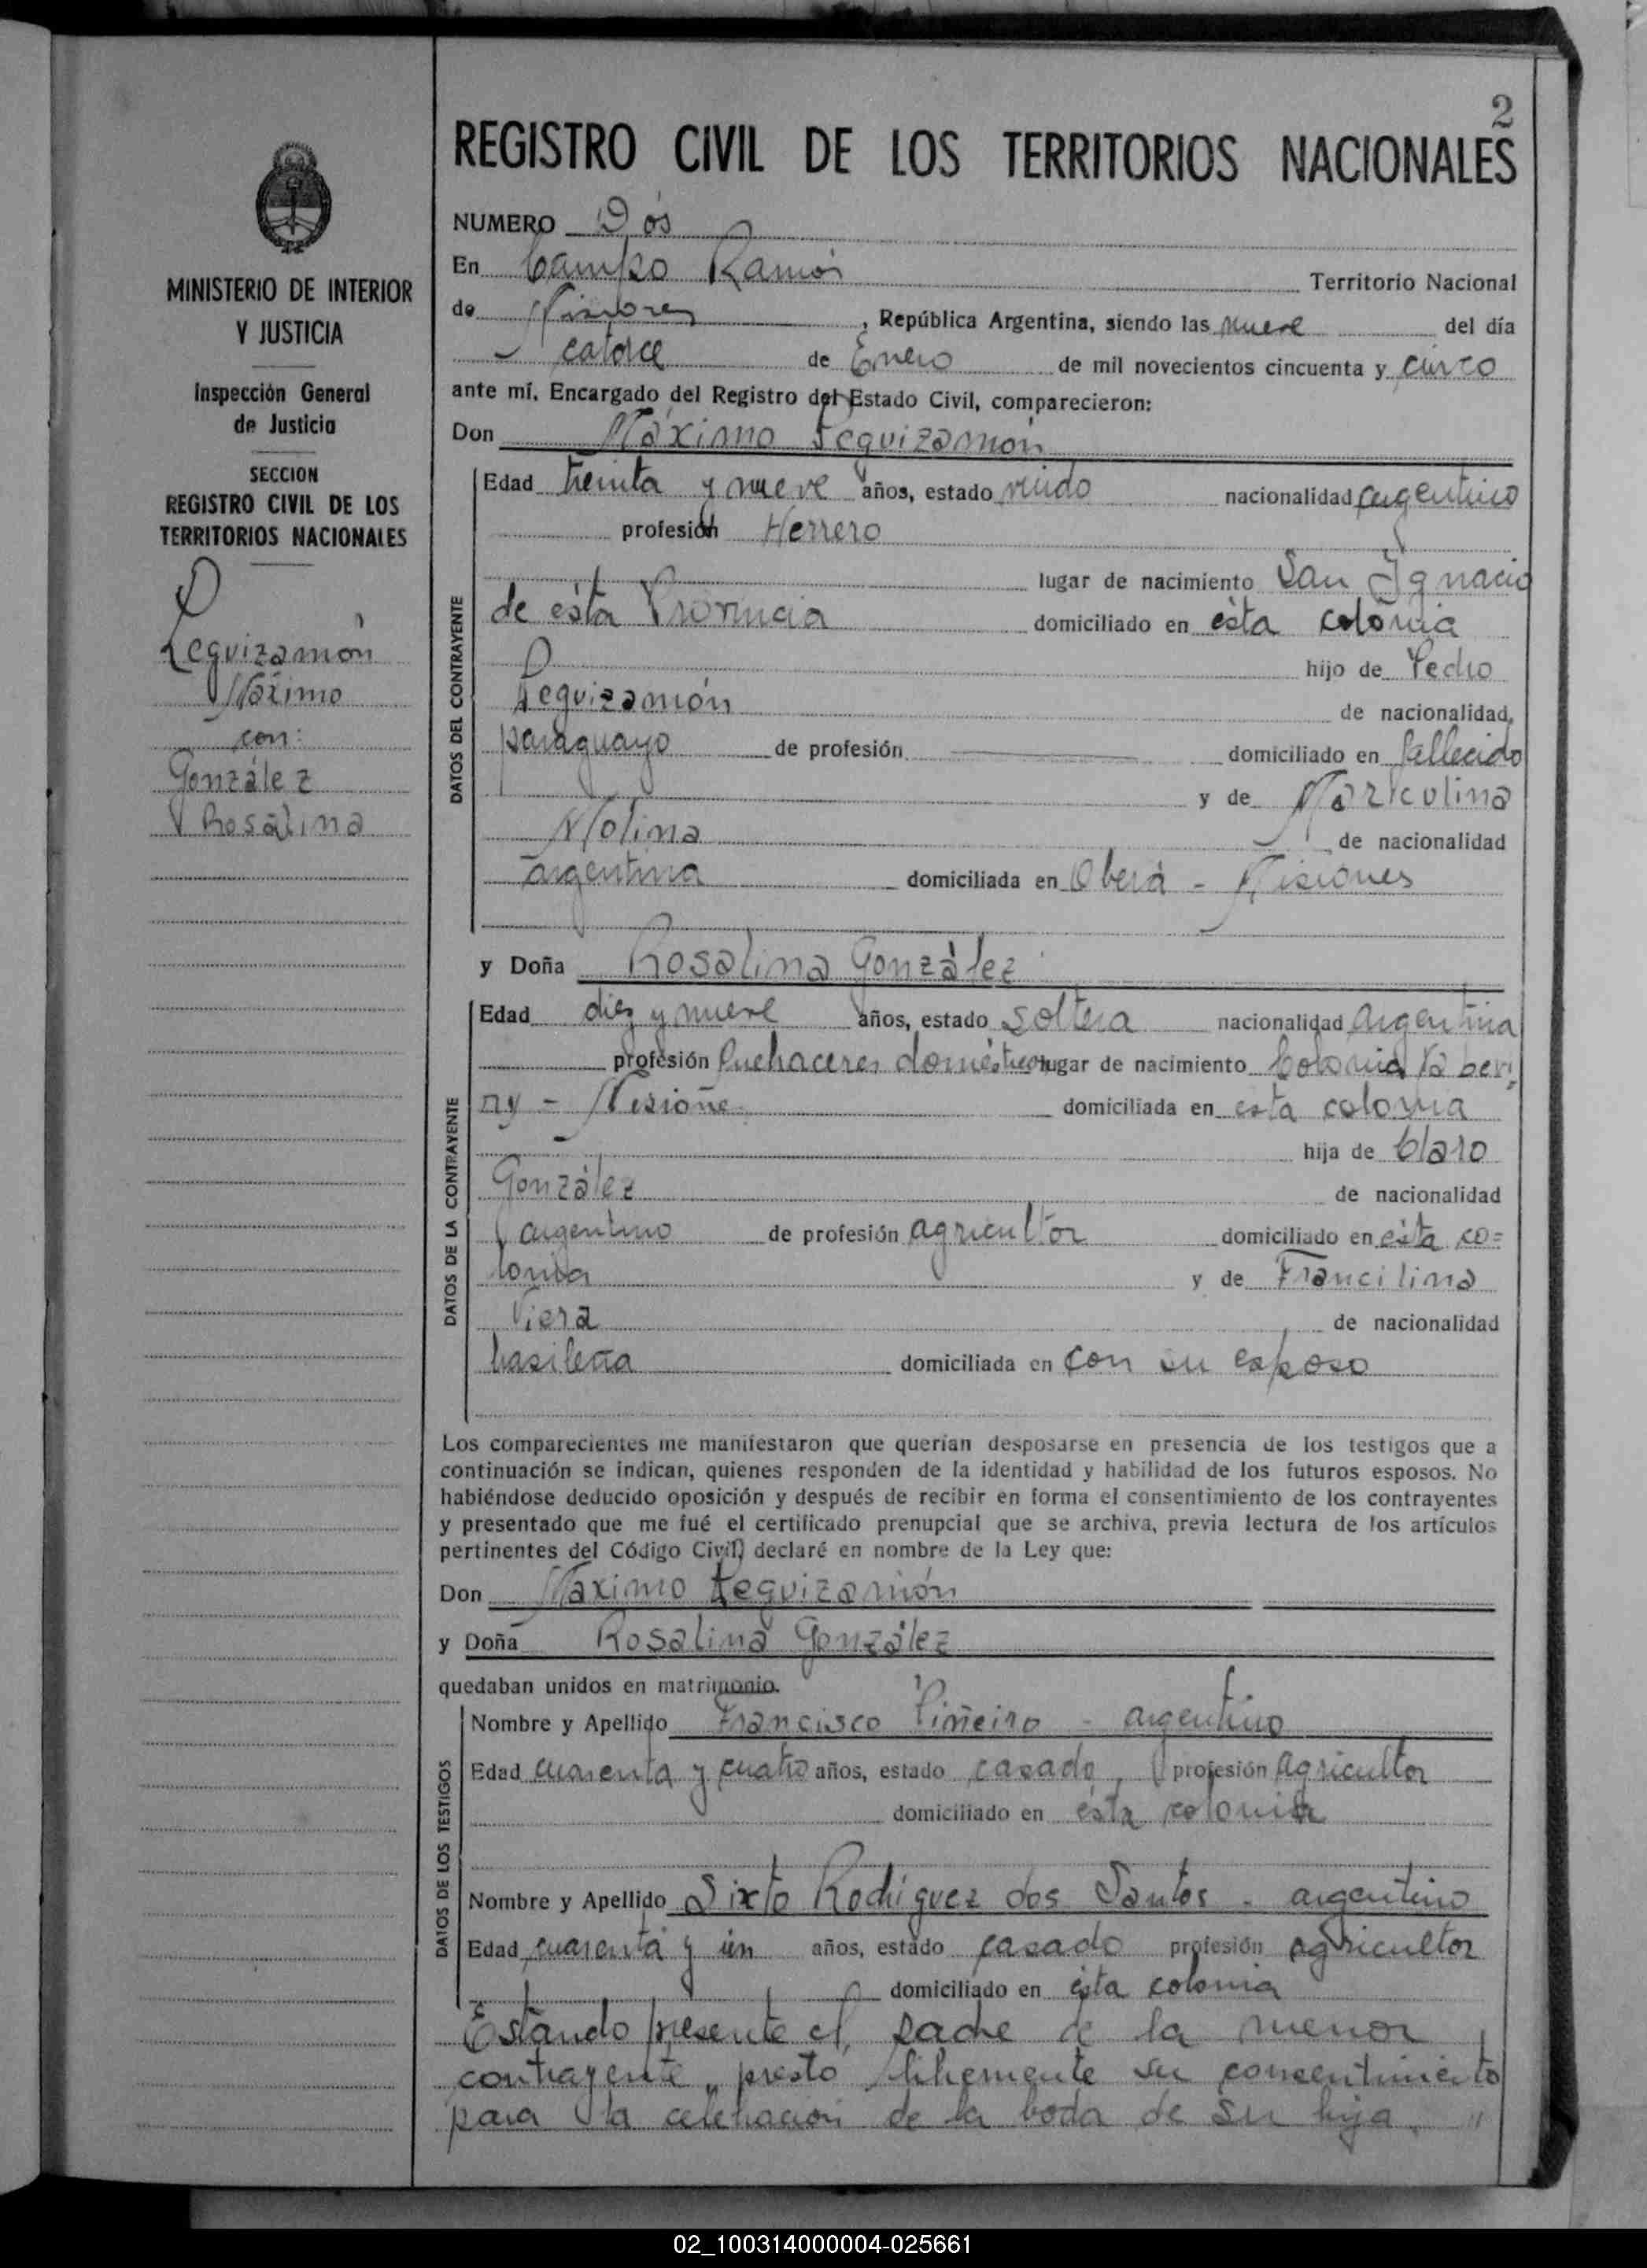 2
REGISTRO CIVIL DE LOS TERRITORIOS NACIONALES
MINISTERIO DE INTERIOR
Y JUSTICIA
Inspección General
de Justicia
SECCION
REGISTRO CIVIL DE LOS
TERRITORIOS NACIONALES
Leguizamón
Máximo
con:
González
Rosalina
NUMERO Dos
En Campo Ramón Territorio Nacional
de Misiones, República Argentina, siendo las nueve del día
catorce de Enero de mil novecientos cincuenta y cinco
ante mí, Encargado del Registro del Estado Civil, comparecieron:
Don Máximo Leguizamón
DATOS DEL CONTRAYENTE
Edad treinta y nueve años, estado viudo nacionalidad argentino
profesión Herrero
lugar de nacimiento San Ignacio
de ésta Provincia domiciliado en ésta colonia
hijo de Pedro
Leguizamón de nacionalidad,
paraguayo de profesión domiciliado en fallecido
y de Marculina
Molina de nacionalidad
argentina domiciliada en Oberá - Misiones
y Doña Rosalina González
DATOS DE LA CONTRAYENTE
Edad diez y nueve años, estado soltera nacionalidad argentina
profesión Quehaceres domésticos lugar de nacimiento Colonia Yaberi
ny - Misione domiciliada en esta colonia
hija de Claro
González de nacionalidad
argentino de profesión agricultor domiciliado en esta co=
lonia y de Francilina
Viera de nacionalidad
brasileña domiciliada en con su esposo
Los comparecientes me manifestaron que querían desposarse en presencia de los testigos que a
continuación se indican, quienes responden de la identidad y habilidad de los futuros esposos. No
habiéndose deducido oposición y después de recibir en forma el consentimiento de los contrayentes
y presentado que me fué el certificado prenupcial que se archiva, previa lectura de los artículos
pertinentes del Código Civil, declaré en nombre de la Ley que:
Don Maximo Leguizamón
y Doña Rosalina González
quedaban unidos en matrimonio.
DATOS DE LOS TESTIGOS
Nombre y Apellido Francisco Piñeiro - argentino
Edad cuarenta y cuatro años, estado casado, profesión agricultor
domiciliado en ésta colonia
Nombre y Apellido Sixto Rodriguez dos Santos - argentino
Edad cuarenta y un años, estado casado profesión agricultor
domiciliado en ésta colonia
Estando presente el padre de la menor
contrayente, prestó libremente su consentimiento
para la celebración de la boda de su hija. "
02_100314000004-025661